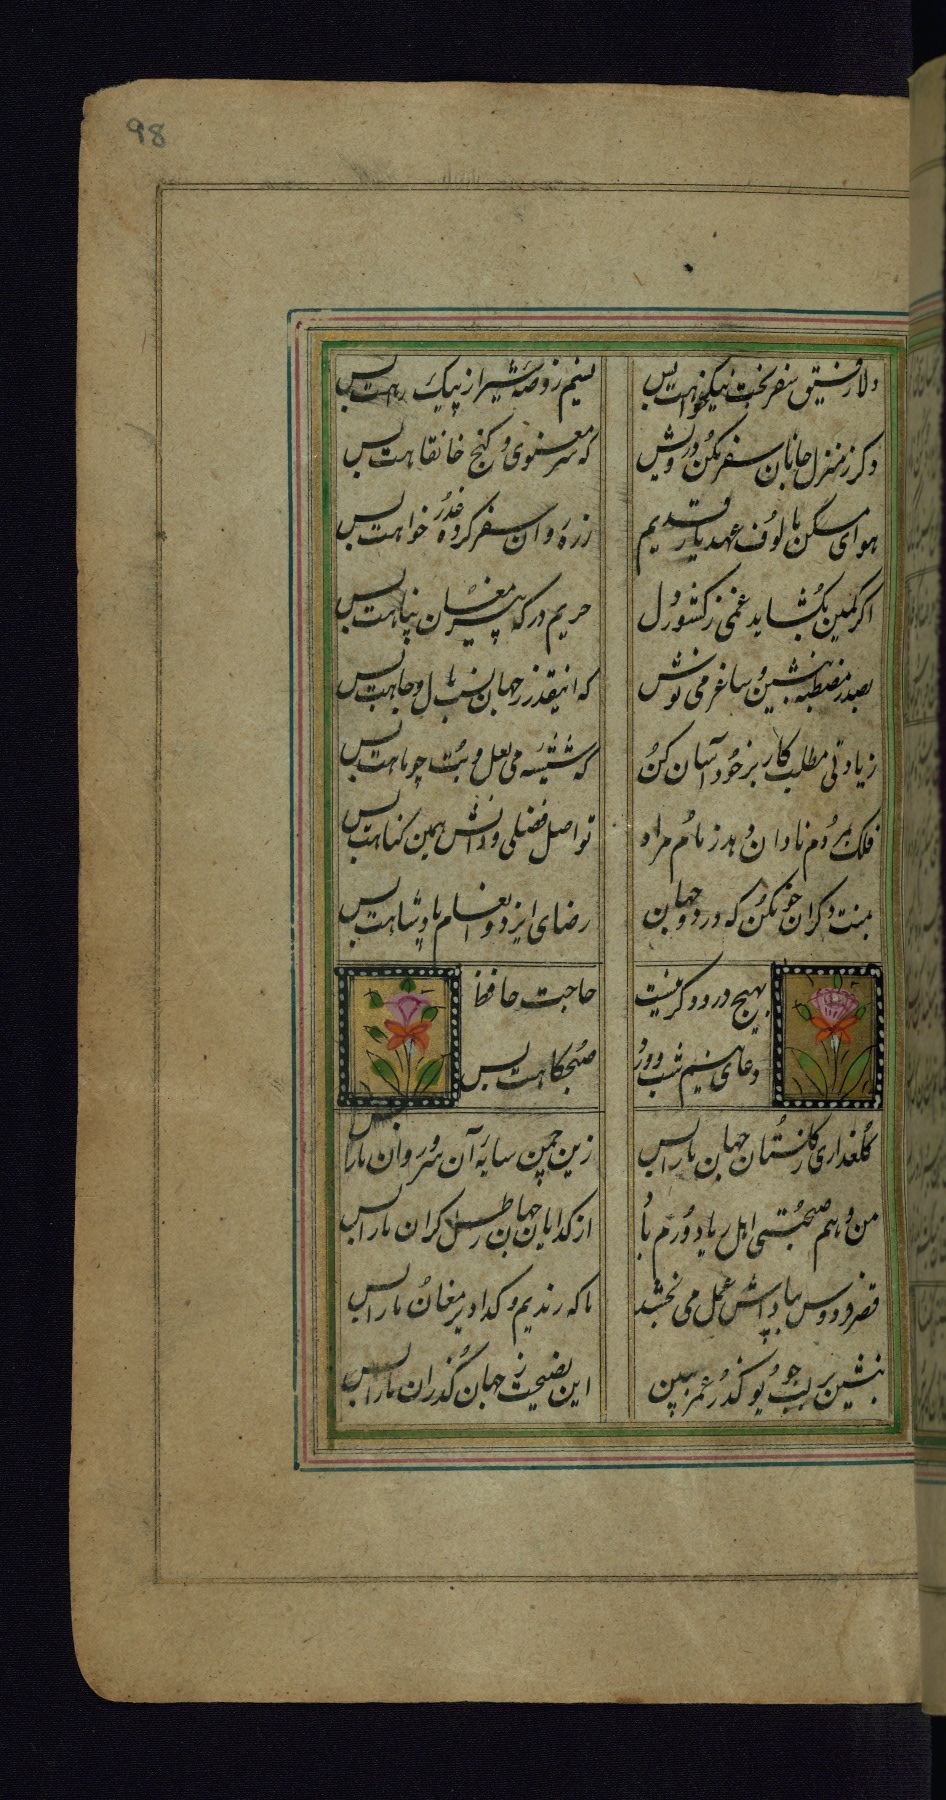 98
دلا رفیق سفر بخت نیکخواهت بس
نسیم روضه شیراز پیک رهت بس
دکر ز منزل جانان سفر مکن درویش
که سر معنوی و کنج خانقاهت بس
هوای مسکن مالوف عهد یار قدیم
ز ره روان سفر کرده عذر خواهت بس
اکر کمین بکشاید غمی ز کشور دل
حریم درکه پیر مغان پناهت بس
بصدر مصطبه بنشین و ساغر می نوش
که اینقدر ز جهان نسب مال و جاهت بس
زیادتی مطلب کار بر خود آسان کن
که شیشه می لعل و بت چو ماهت بس
فلک بمردم نادان دهد زمام مراد
تو اصل فضلی و دانش همین کناهت بس
بمنت دکران خو مکن که در دو جهان
رضای ایزد و انعام پادشاهت بس
بهیچ درد دکر نیست
حاجت حافظ
دعای نیم شب و ورد
صبحکاهت بس
کلعذاری ز کلستان جهان ما را بس
زین چمن سایه آن سرو روان ما را بس
من و هم صحبتی اهل ریا دورم باد
از کدایان جهان رطل کران ما را بس
قصر فردوس بپاداش عمل می بخشند
ما که رندیم و کدا دیر مغان ما را بس
بنشین بر لب جوی و کذر عمر ببین
این نصیحت ز جهان کذران ما را بس